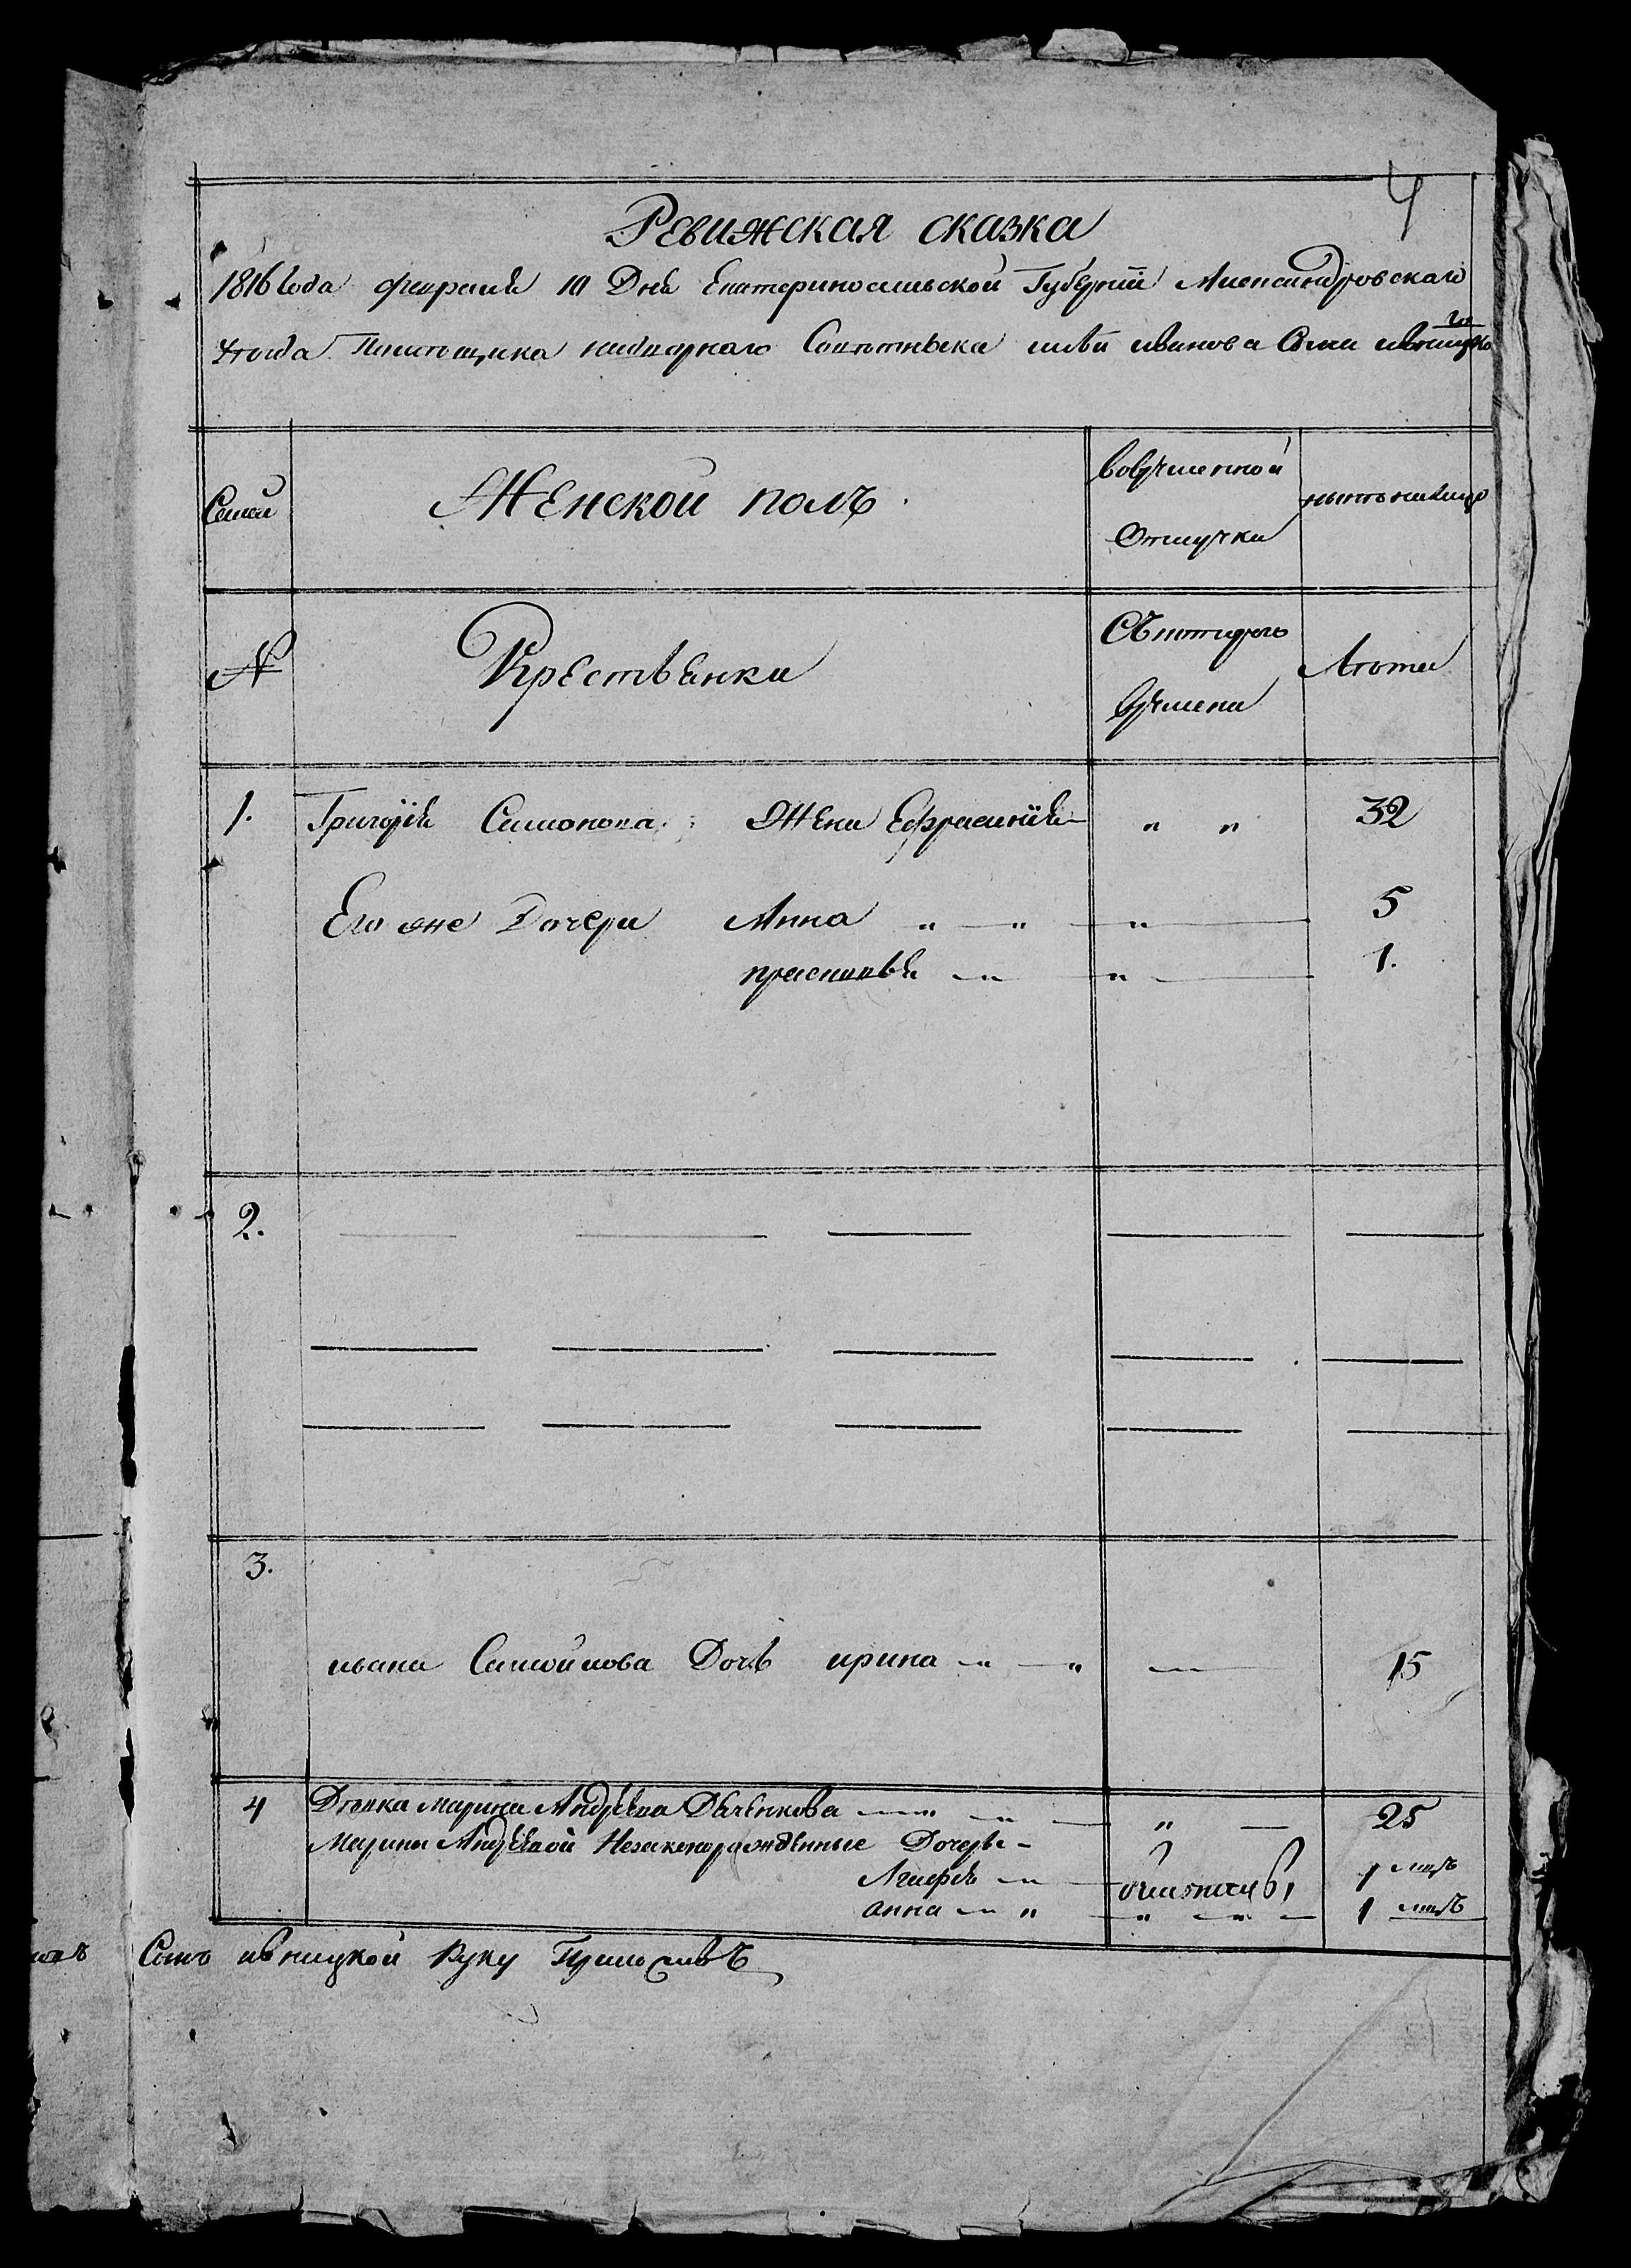 4
Ревижская сказка
1816 года февраля 10 Дня Екатеринославской Губернїи Александровскаго
уезда Помещика надворнаго Советника ивана Сына
Семьи
Женской полъ
вовременной
отлучки
ныне налицо
№
Крестьянки
Съкоторого
времени
Лета
1. Григорїя Симонова Жена Ефрасинїя " " 32
Его же Дочери Анна " " " 5
прасковья " " 1.
2.
3.
ивана Самойлова Дочь ирина " " 15
4 Девка марина Андреева Дяченкова " " " 25
Марины Андреевой Незаконорожденные Дочери
" 1
анна " " " " 1
Сынъ ивницкой Руку Приложилъ